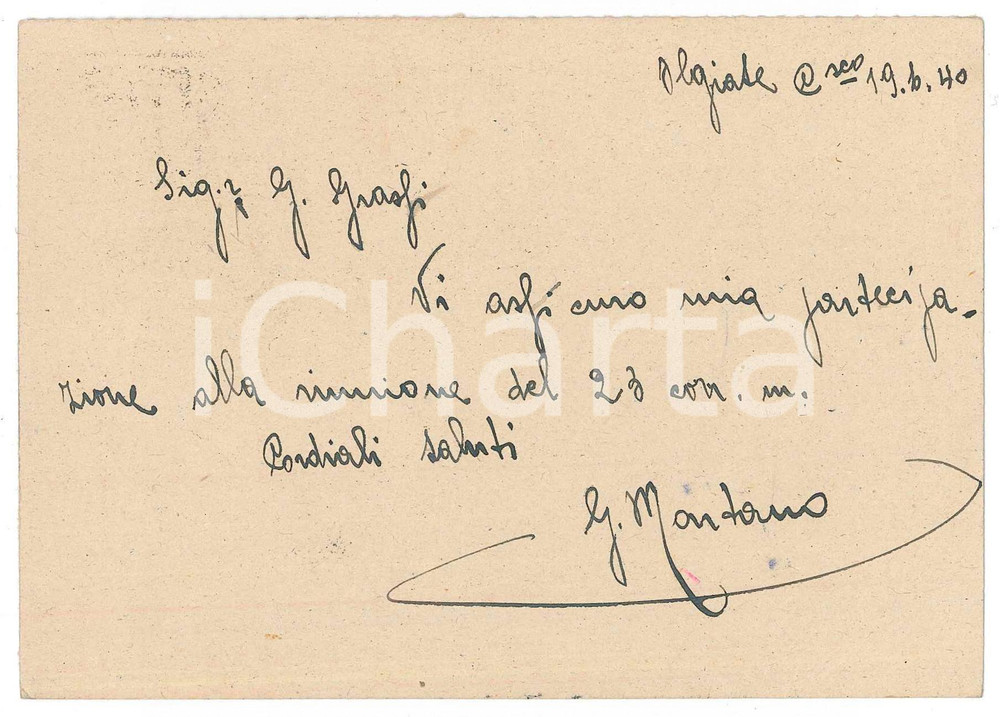 Olgiate C.sco 19.6.40
Sig.r G. Grassi
Vi assicuro mia partecipa-
zione alla riunione del 23 corr. m.
Cordiali saluti
G. Montano
iCharta